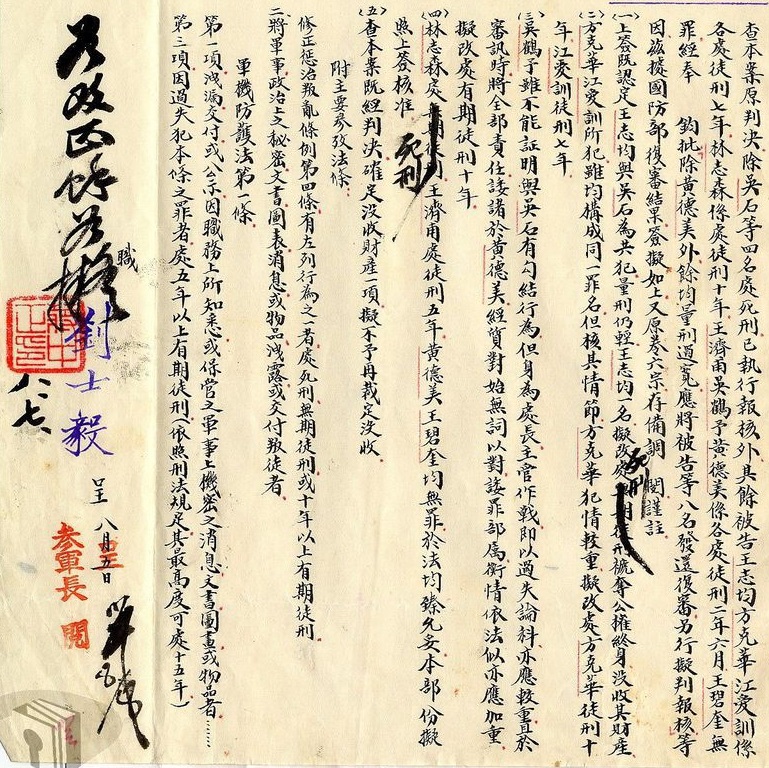 查本案原判決除吳石等四名處死刑已執行報核外其餘被告王志均方克華江愛訓係
各處徒刑七年林志森係處徒刑十年王濟甫吳鶴予黃德美係各處徒刑二年六月王碧奎無
罪經奉 鈞批除黃德美外餘均量刑過寬應將被告等八名發還復審另行擬判報核等
因茲據國防部復審結果簽擬如上又原卷六宗存備調閱謹註
(一)上簽既認定王志均與吳石為共犯量刑仍輕王志均一名擬改處 期徒刑褫奪公權終身沒收其財產
死刑
(二)方克華江愛訓所犯雖均構成同一罪名但核其情節方克華犯情較重擬改處方克華徒刑十
年江愛訓徒刑七年
(三)吳鶴予雖不能証明與吳石有勾結行為但身為處長主官作戰即以過失論科亦應較重且於
審訊時將全部責任諉諸於黃德美經質對始無詞以對諉罪部屬衡情依法似亦應加重
擬改處有期徒刑十年
(四)林志森處無期徒刑王濟甫處徒刑五年黃德美王碧奎均無罪於法均臻允妥本部份擬
死刑
照上簽核准
(五)查本案既經判決確定沒收財產一項擬不予再裁定沒收
附主要參攷法條
修正懲治叛亂條例第四條有左列行為之一者處死刑無期徒刑或十年以上有期徒刑
二將軍事政治上之秘密文書圖表消息或物品洩露或交付叛徒者
軍機防護法第一條
第一項洩漏交付或公示因職務上所知悉或保管之軍事上機密之消息文書圖畫或物品者……
第三項因過失犯本條之罪者處五年以上有期徒刑(依照刑法規定其最高度可處十五年)
職
劉士毅
呈 八月五日
參軍長 閱
為改正餘為擬
八、七、